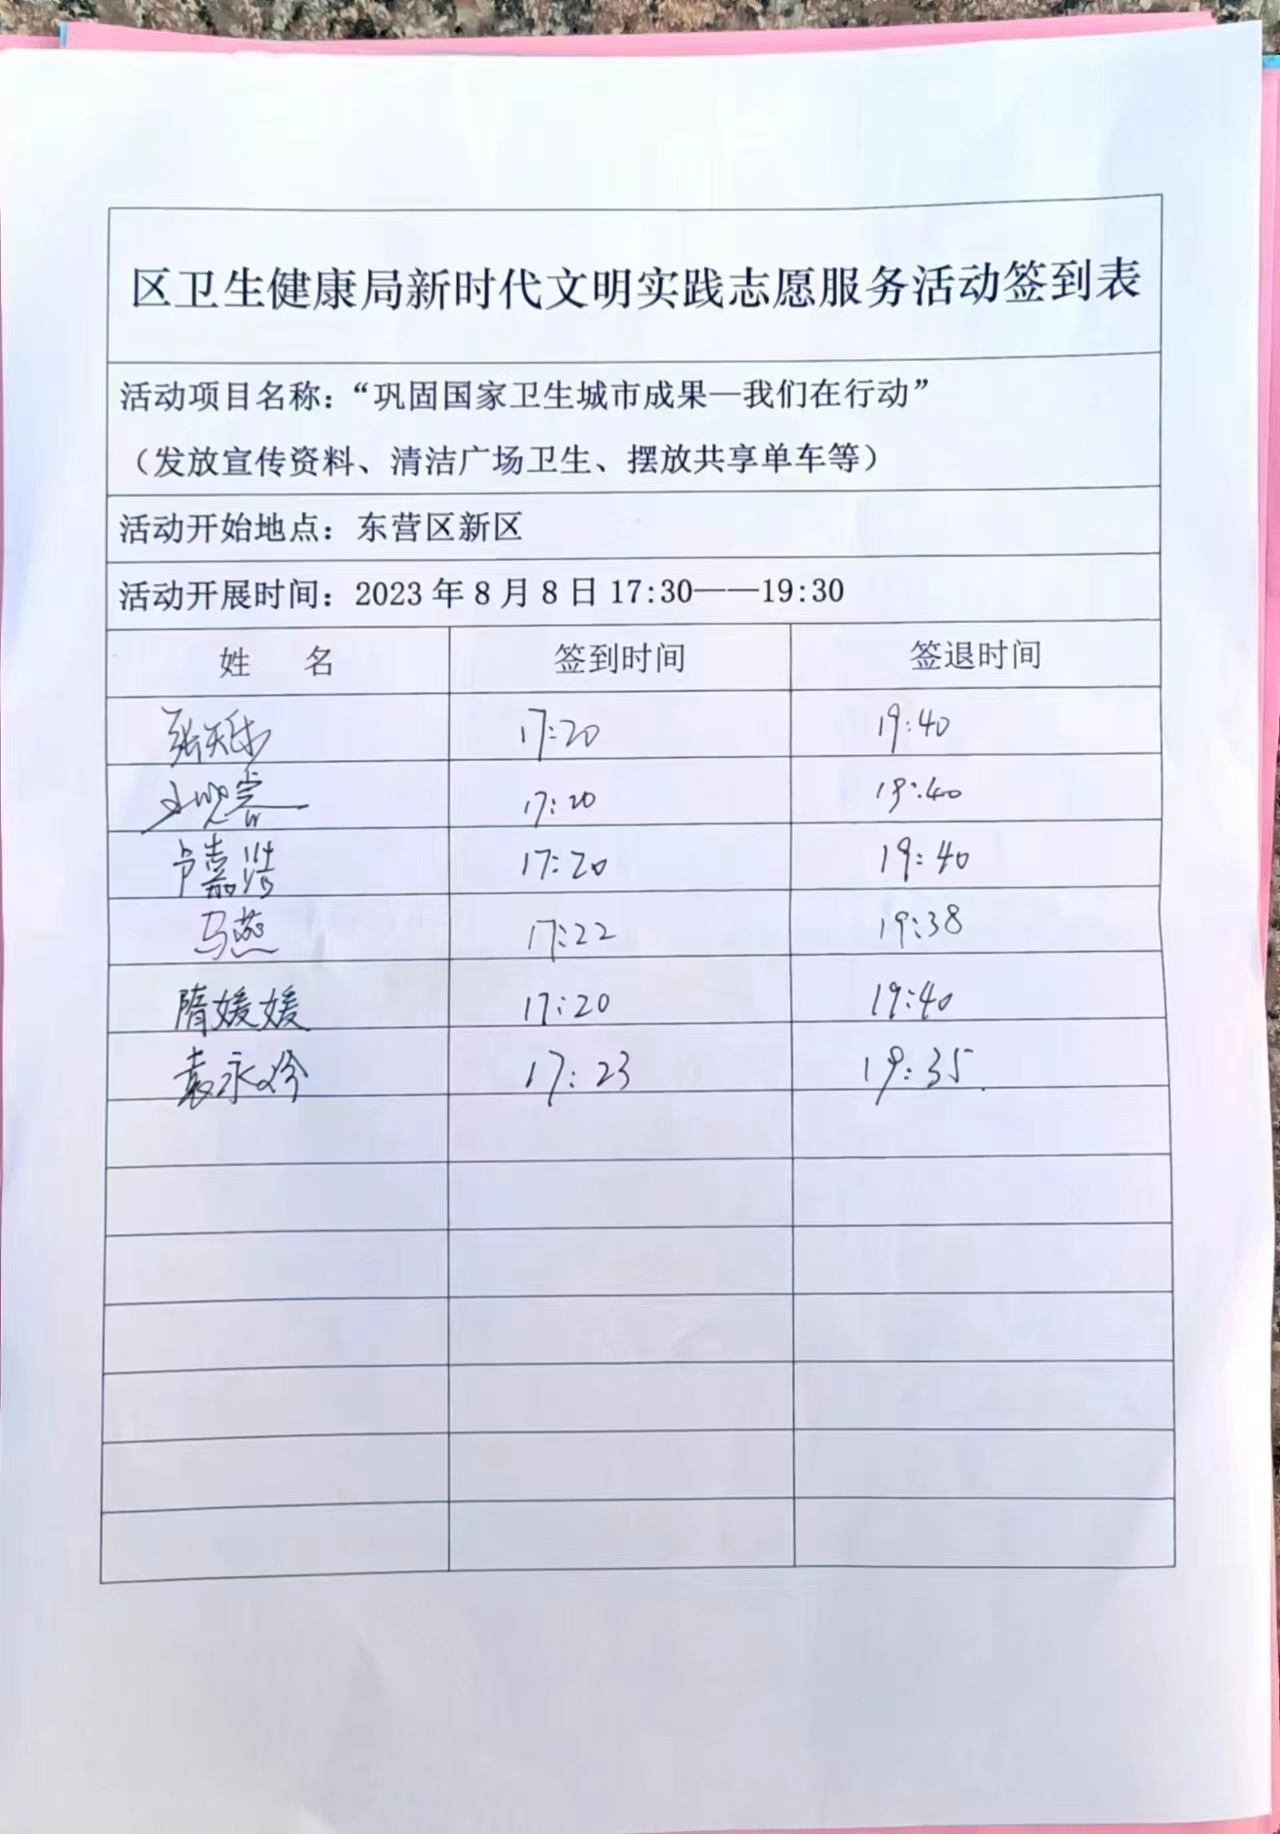 区卫生健康局新时代文明实践志愿服务活动签到表
活动项目名称：“巩固国家卫生城市成果—我们在行动”
（发放宣传资料、清洁广场卫生、摆放共享单车等）
活动开始地点：东营区新区
活动开展时间：2023年8月8日17:30——19:30
姓 名 签到时间 签退时间
张天乐 17:20 19:40
17:20 19:40
卢嘉浩 17:20 19:40
马燕 17:22 19:38
隋媛媛 17:20 19:40
袁永玲 17:23 19:35